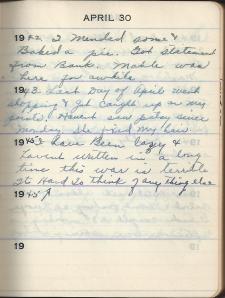 APRIL 30
1942 I Mended some &
Baked a pie. Got statement
from Bank. Mable was
here for awhile
1943. Last Day of April went
shopping & got caught up on my
points. Havent seen patsy since
Monday she fixed my hair.
1945 I have Been lazy &
havent written in a long
time this war is terrible
it Hard to think of any thing else
1945
19